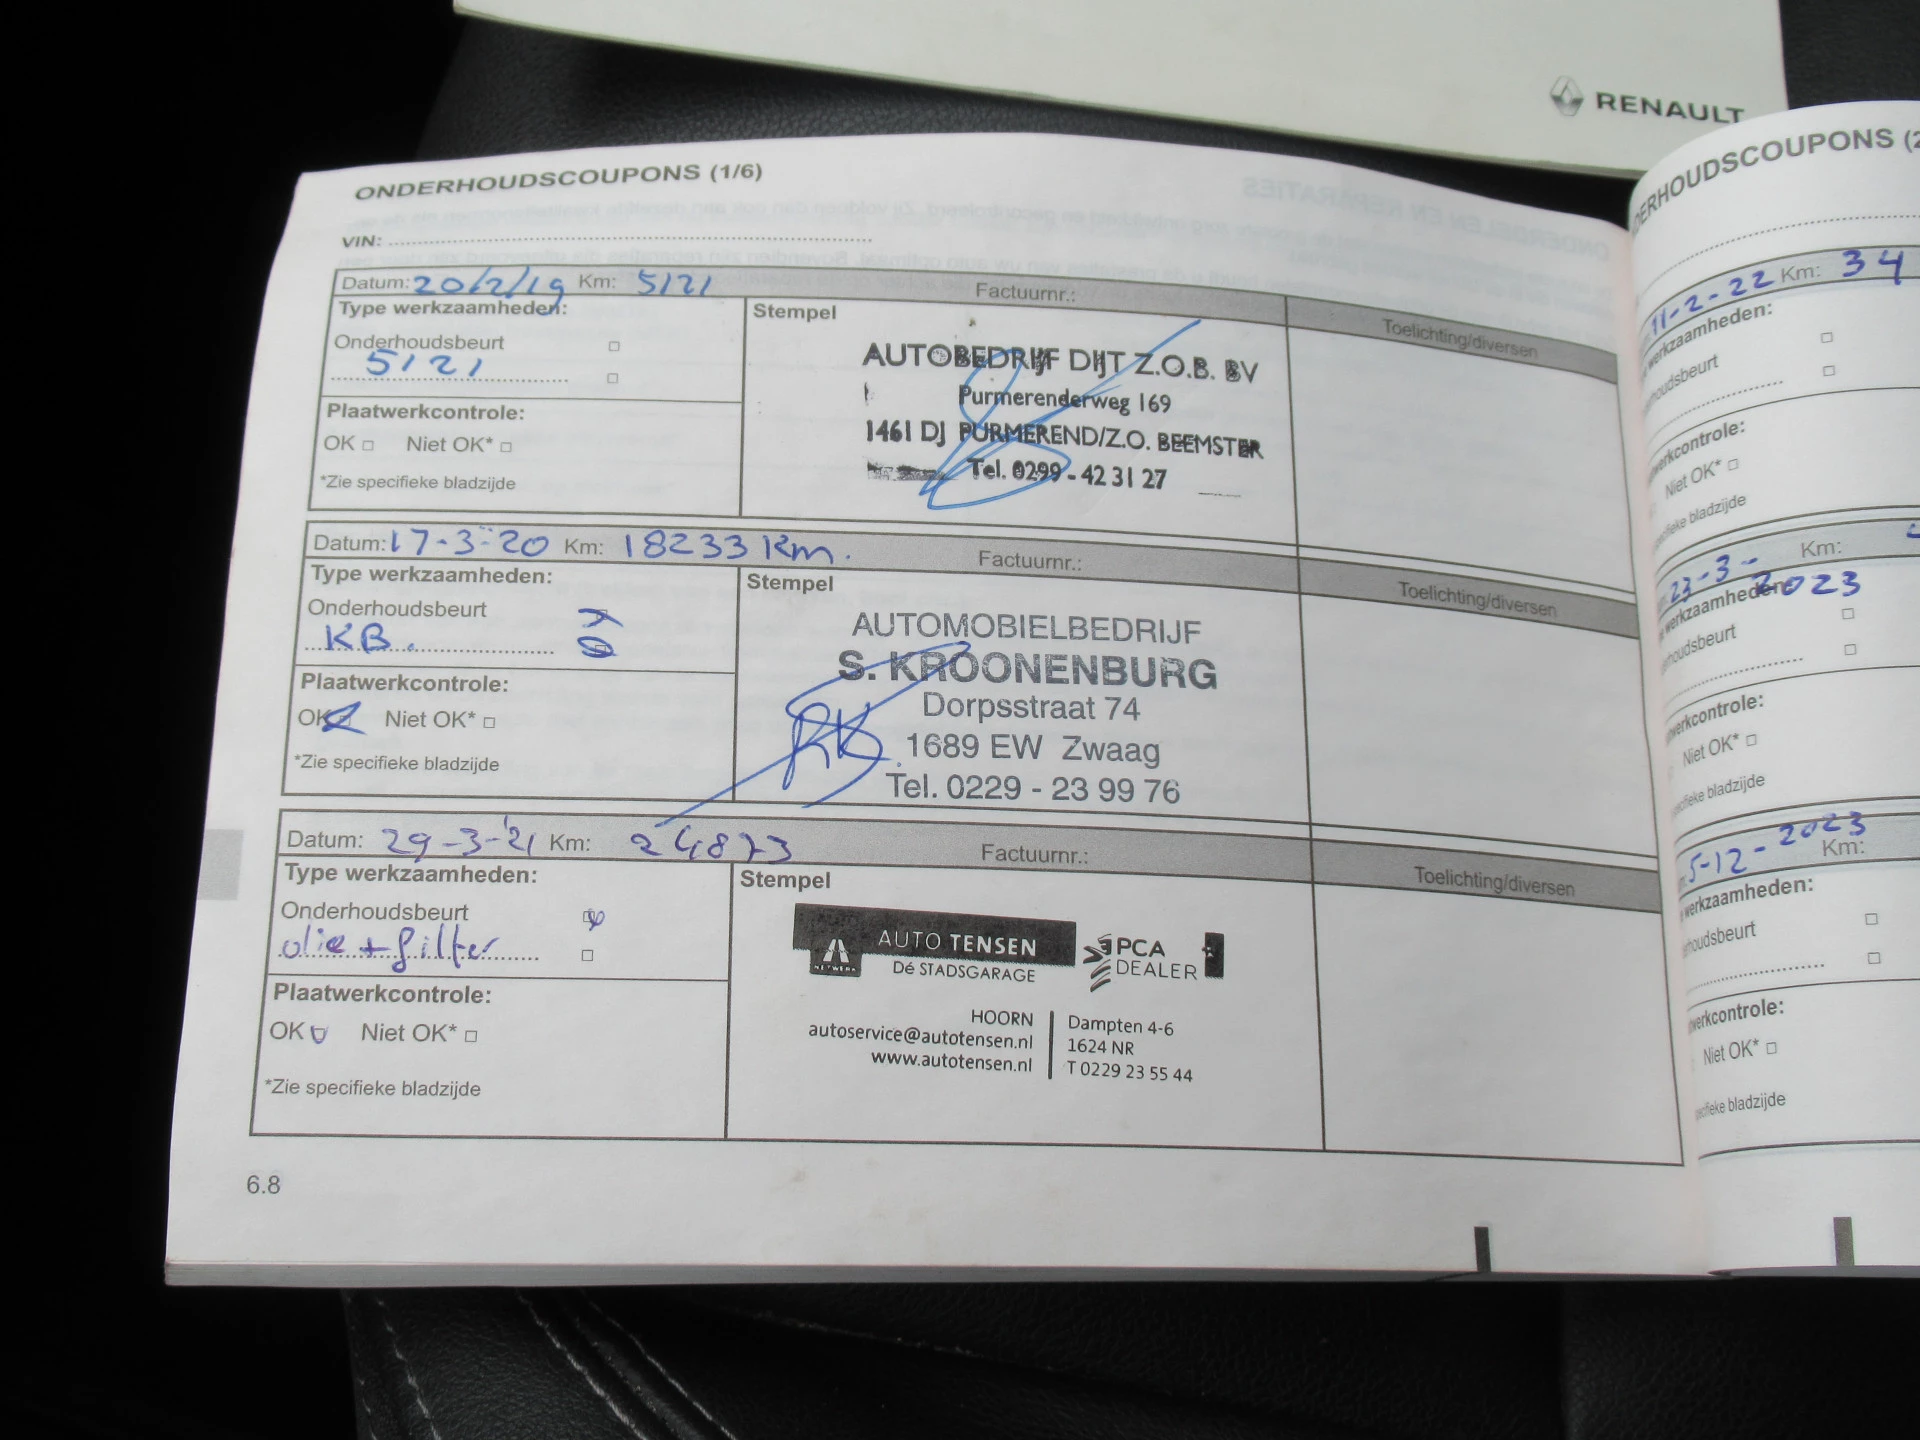 RENAULT
ONDERHOUDSCOUPONS (1/6)
VIN:
Datum: 20/2/19 Km: 5121 Factuurnr.:
Type werkzaamheden:
Onderhoudsbeurt
5121
Plaatwerkcontrole:
OK Niet OK*
*Zie specifieke bladzijde
Stempel
AUTOBEDRIJF DIJT Z.O.B. BV
Purmerenderweg 169
1461 DJ PURMEREND/Z.O. BEEMSTER
Tel. 0299 - 42 31 27
Toelichting/diversen
Datum: 17-3-20 Km: 18233 Km. Factuurnr.:
Type werkzaamheden:
Onderhoudsbeurt
KB.
Plaatwerkcontrole:
OK Niet OK*
*Zie specifieke bladzijde
Stempel
AUTOMOBIELBEDRIJF
S. KROONENBURG
Dorpsstraat 74
1689 EW Zwaag
Tel. 0229 - 23 99 76
Toelichting/diversen
Datum: 29-3-'21 Km: 24873 Factuurnr.:
Type werkzaamheden:
Onderhoudsbeurt
olie + filter
Plaatwerkcontrole:
OK Niet OK*
*Zie specifieke bladzijde
Stempel
AUTO TENSEN
NETWERK
Dé STADSGARAGE
PCA
DEALER
HOORN
autoservice@autotensen.nl
www.autotensen.nl
Dampten 4-6
1624 NR
T 0229 23 55 44
Toelichting/diversen
6.8
DERHOUDSCOUPONS (2
11-2-22 Km: 34
werkzaamheden:
houdsbeurt
werkcontrole:
Niet OK*
specifieke bladzijde
23-3-2023 Km:
werkzaamheden:
houdsbeurt
werkcontrole:
Niet OK*
specifieke bladzijde
5-12-2023 Km:
werkzaamheden:
houdsbeurt
werkcontrole:
Niet OK*
specifieke bladzijde